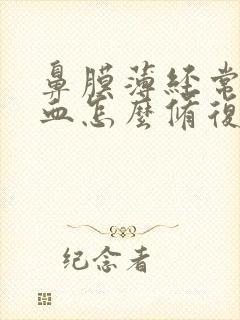 鼻膜薄経常
血怎麼脩復
纪念者